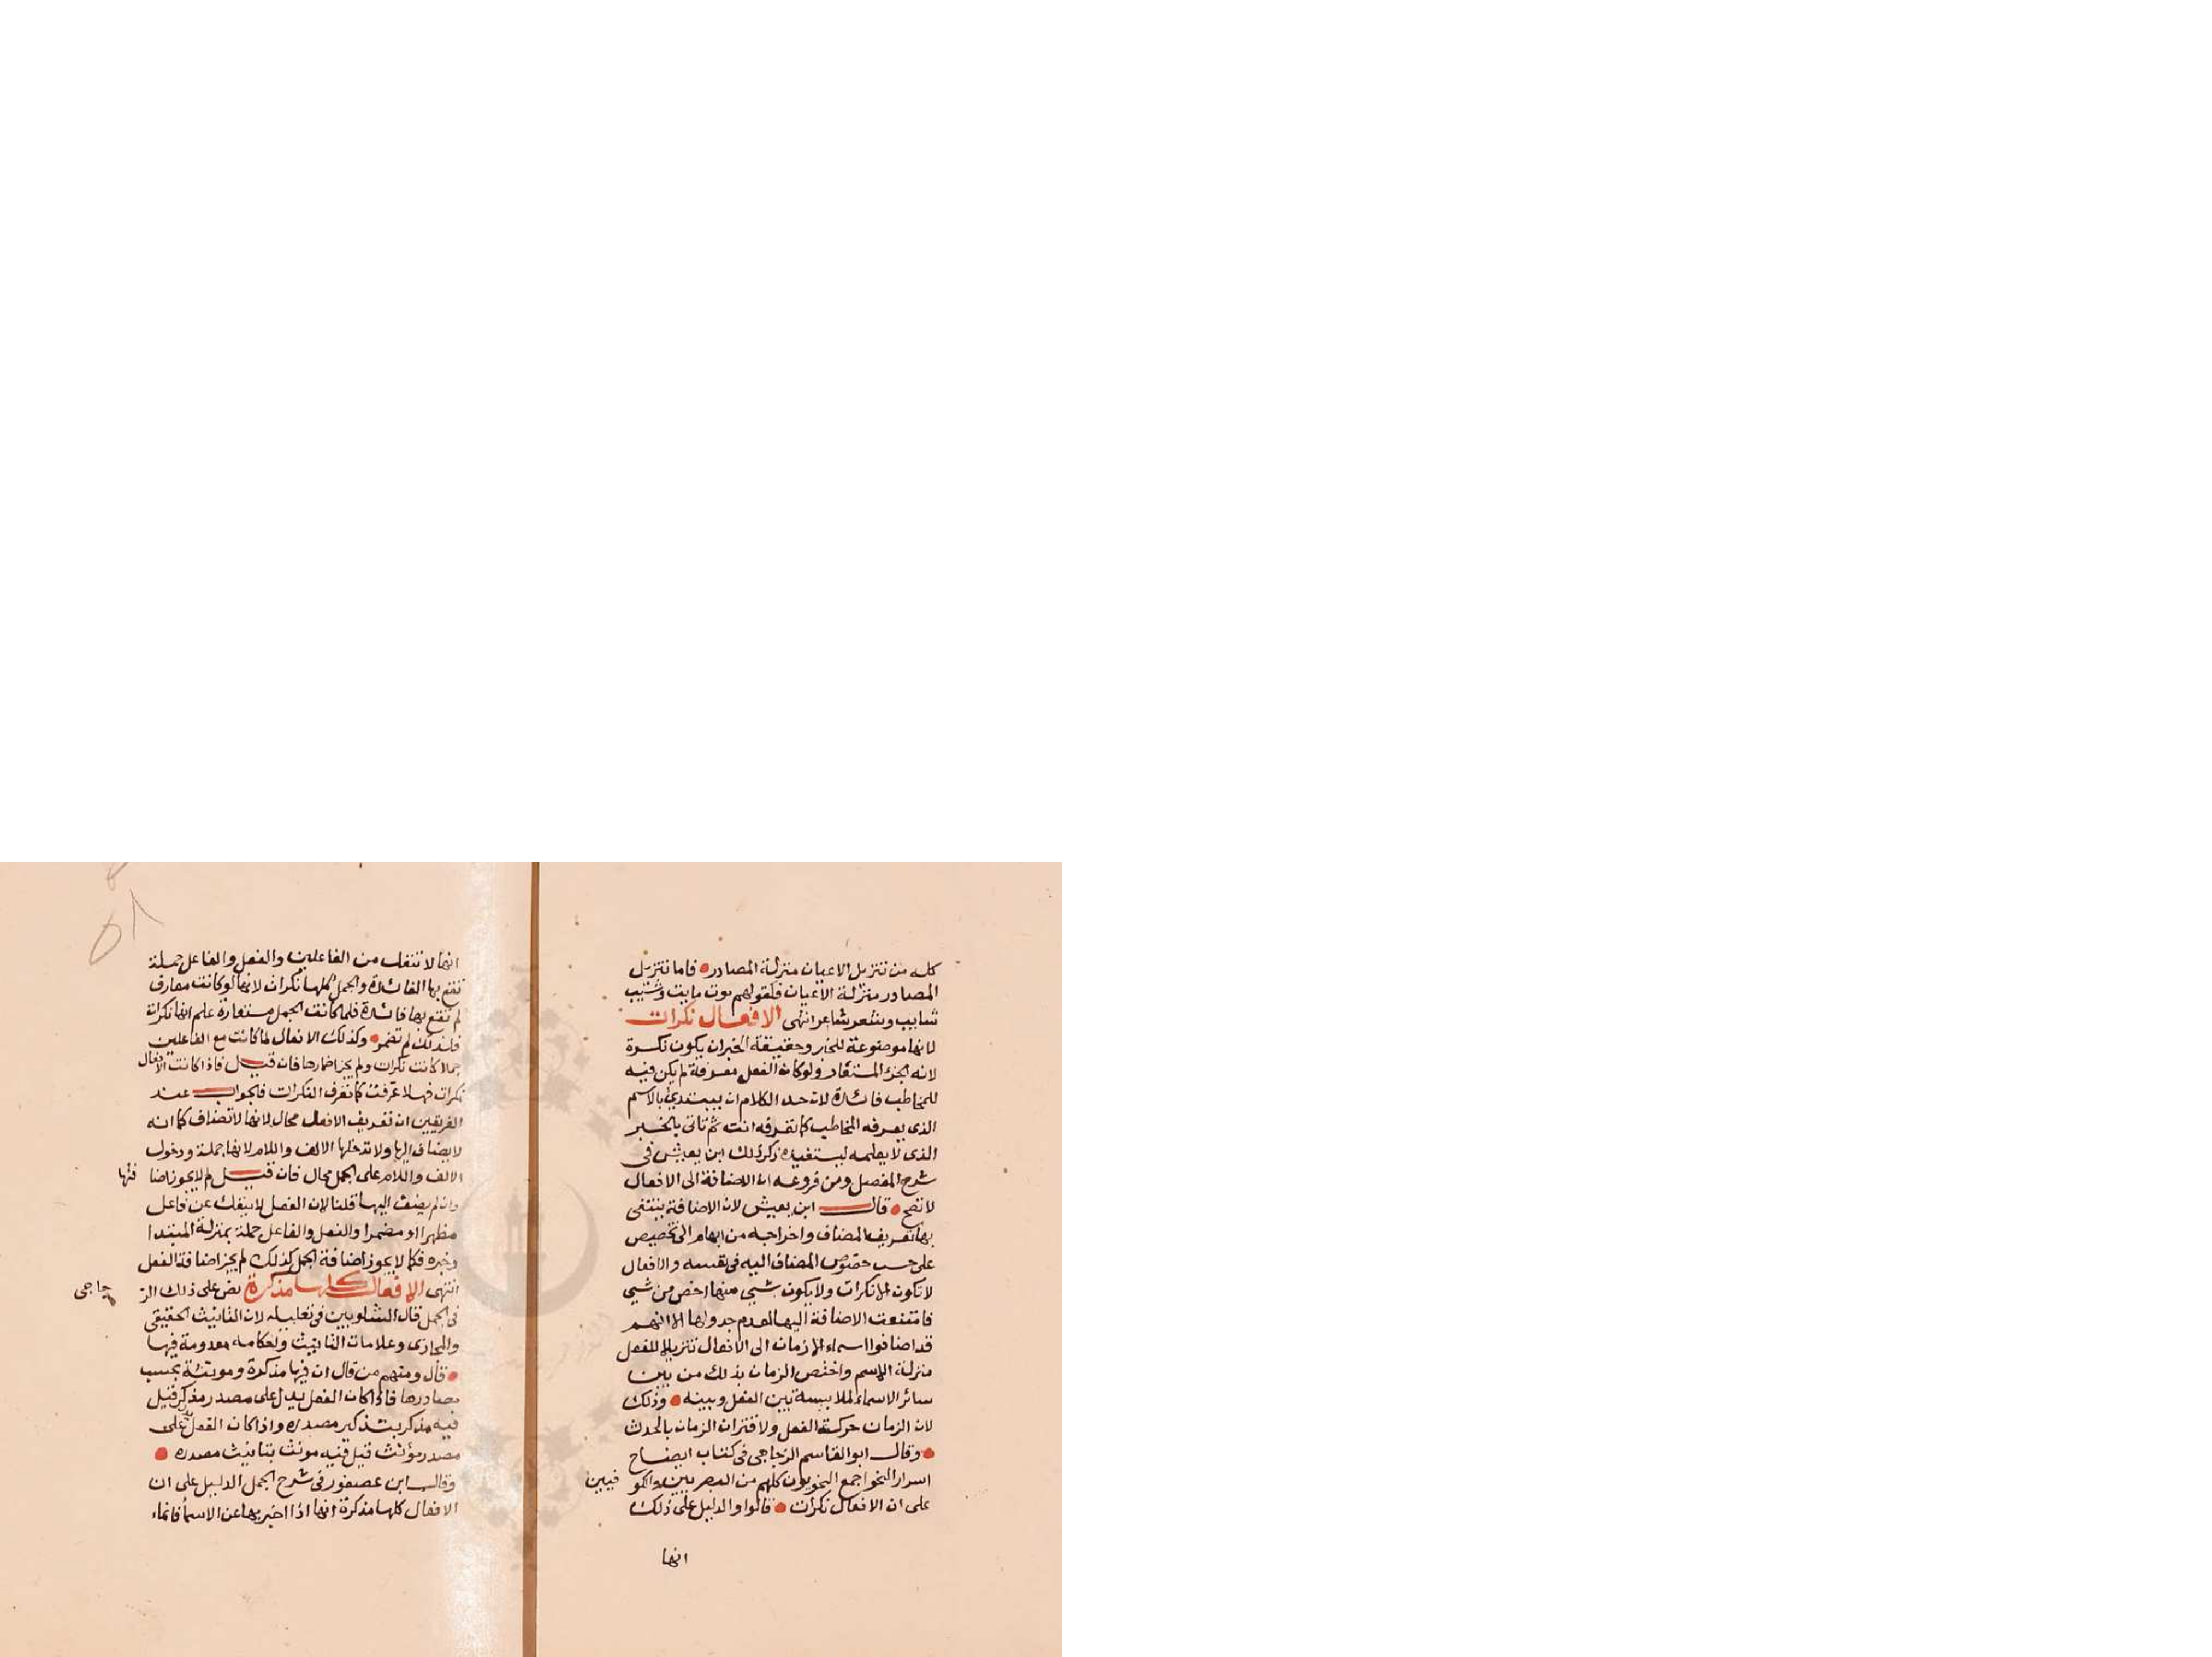 كله من تنزيل الاعيان منزلة المصادر فاما تنزيل
المصادر منزلة الاعيان فلقولهم موت مايت وشيب
شايب وشعر شاعر انتهى الافعال نكرات
لانها موضوعة للخبر وحقيقة الخبر ان يكون نكرة
لانه الجزء المستفاد ولو كان الفعل معرفة لم يكن فيه
للمخاطب فائدة لان حد الكلام ان يبتدئ بالاسم
الذى يعرفه المخاطب كما تعرفه انت ثم تاتى بالخبر
الذى لا يعلمه ليستفيده ذكر ذلك ابن يعيش فى
شرح المفصل ومن فروعه ان الاضافة الى الافعال
لا تصح قال ابن يعيش لان الاضافة ينبغى
بها تعريف المضاف واخراجه من ابهام الى تخصيص
على حسب خصوص المضاف اليه فى نفسه والافعال
لا تكون الا نكرات ولا يكون شيى منها اخص من شيى
فامتنعت الاضافة اليها لعدم جدواها الا انهم
قد اضافوا اسماء الازمان الى الافعال تنزيلا للفعل
منزلة الاسم واختص الزمان بذلك من بين
سائر الاسماء لملابسة بين الفعل وبينه وذلك
لان الزمان حركة الفعل ولاقتران الزمان بالحدث
وقال ابو القاسم الزجاجى فى كتاب ايضاح
اسرار النحو اجمع النحويون كلهم من البصريين والكو فيين
على ان الافعال نكرات قالوا والدليل على ذلك
انها
انها لا تنفك من الفاعلين والفعل والفاعل جملة
تقع بها الفائدة والجمل كلها نكرات لانها لو كانت معارف
لم تقع بها فائدة فلما كانت الجمل مستفادة علم انها نكرات
فلذلك لم تضمر وكذلك الافعال لما كانت مع الفاعلين
جملا كانت نكرات ولم يجز اضمارها فان قيل فاذا كانت الافعال
نكرات فهلا عرفت كما تعرف النكرات فالجواب عند
الفريقين ان تعريف الافعال محال لانها لا تضاف كما انه
لا يضاف اليها ولا تدخلها الالف واللام لانها جملة ودخول
الالف واللام على الجمل محال فان قيل لم لا يجوز اضا فتها
وان لم يضف اليها قلنا لان الفعل لا ينفك عن فاعل
مظهرا او مضمرا والفعل والفاعل جملة بمنزلة المبتدا
وخبره فكما لا يجوز اضافة الجمل كذلك لم يجز اضافة الفعل
انتهى الافعال كلها مذكرة نص على ذلك الز جاجى
فى الجمل قال الشلوبين فى تعليله لان التانيث الحقيقى
والمجازى وعلامات التانيث واحكامه معدومة فيها
قال ومنهم من قال ان فيها مذكرة ومونثة بحسب
مصادرها فاذا كان الفعل يدل على مصدر مذكر قيل
فيه مذكر بتذكير مصدره واذا كان الفعل يدل على
مصدر مؤنث قيل فيه مونث بتانيث مصدره
وقال ابن عصفور فى شرح الجمل الدليل على ان
الافعال كلها مذكرة انها اذا اخبر بها عن الاسماء فانما